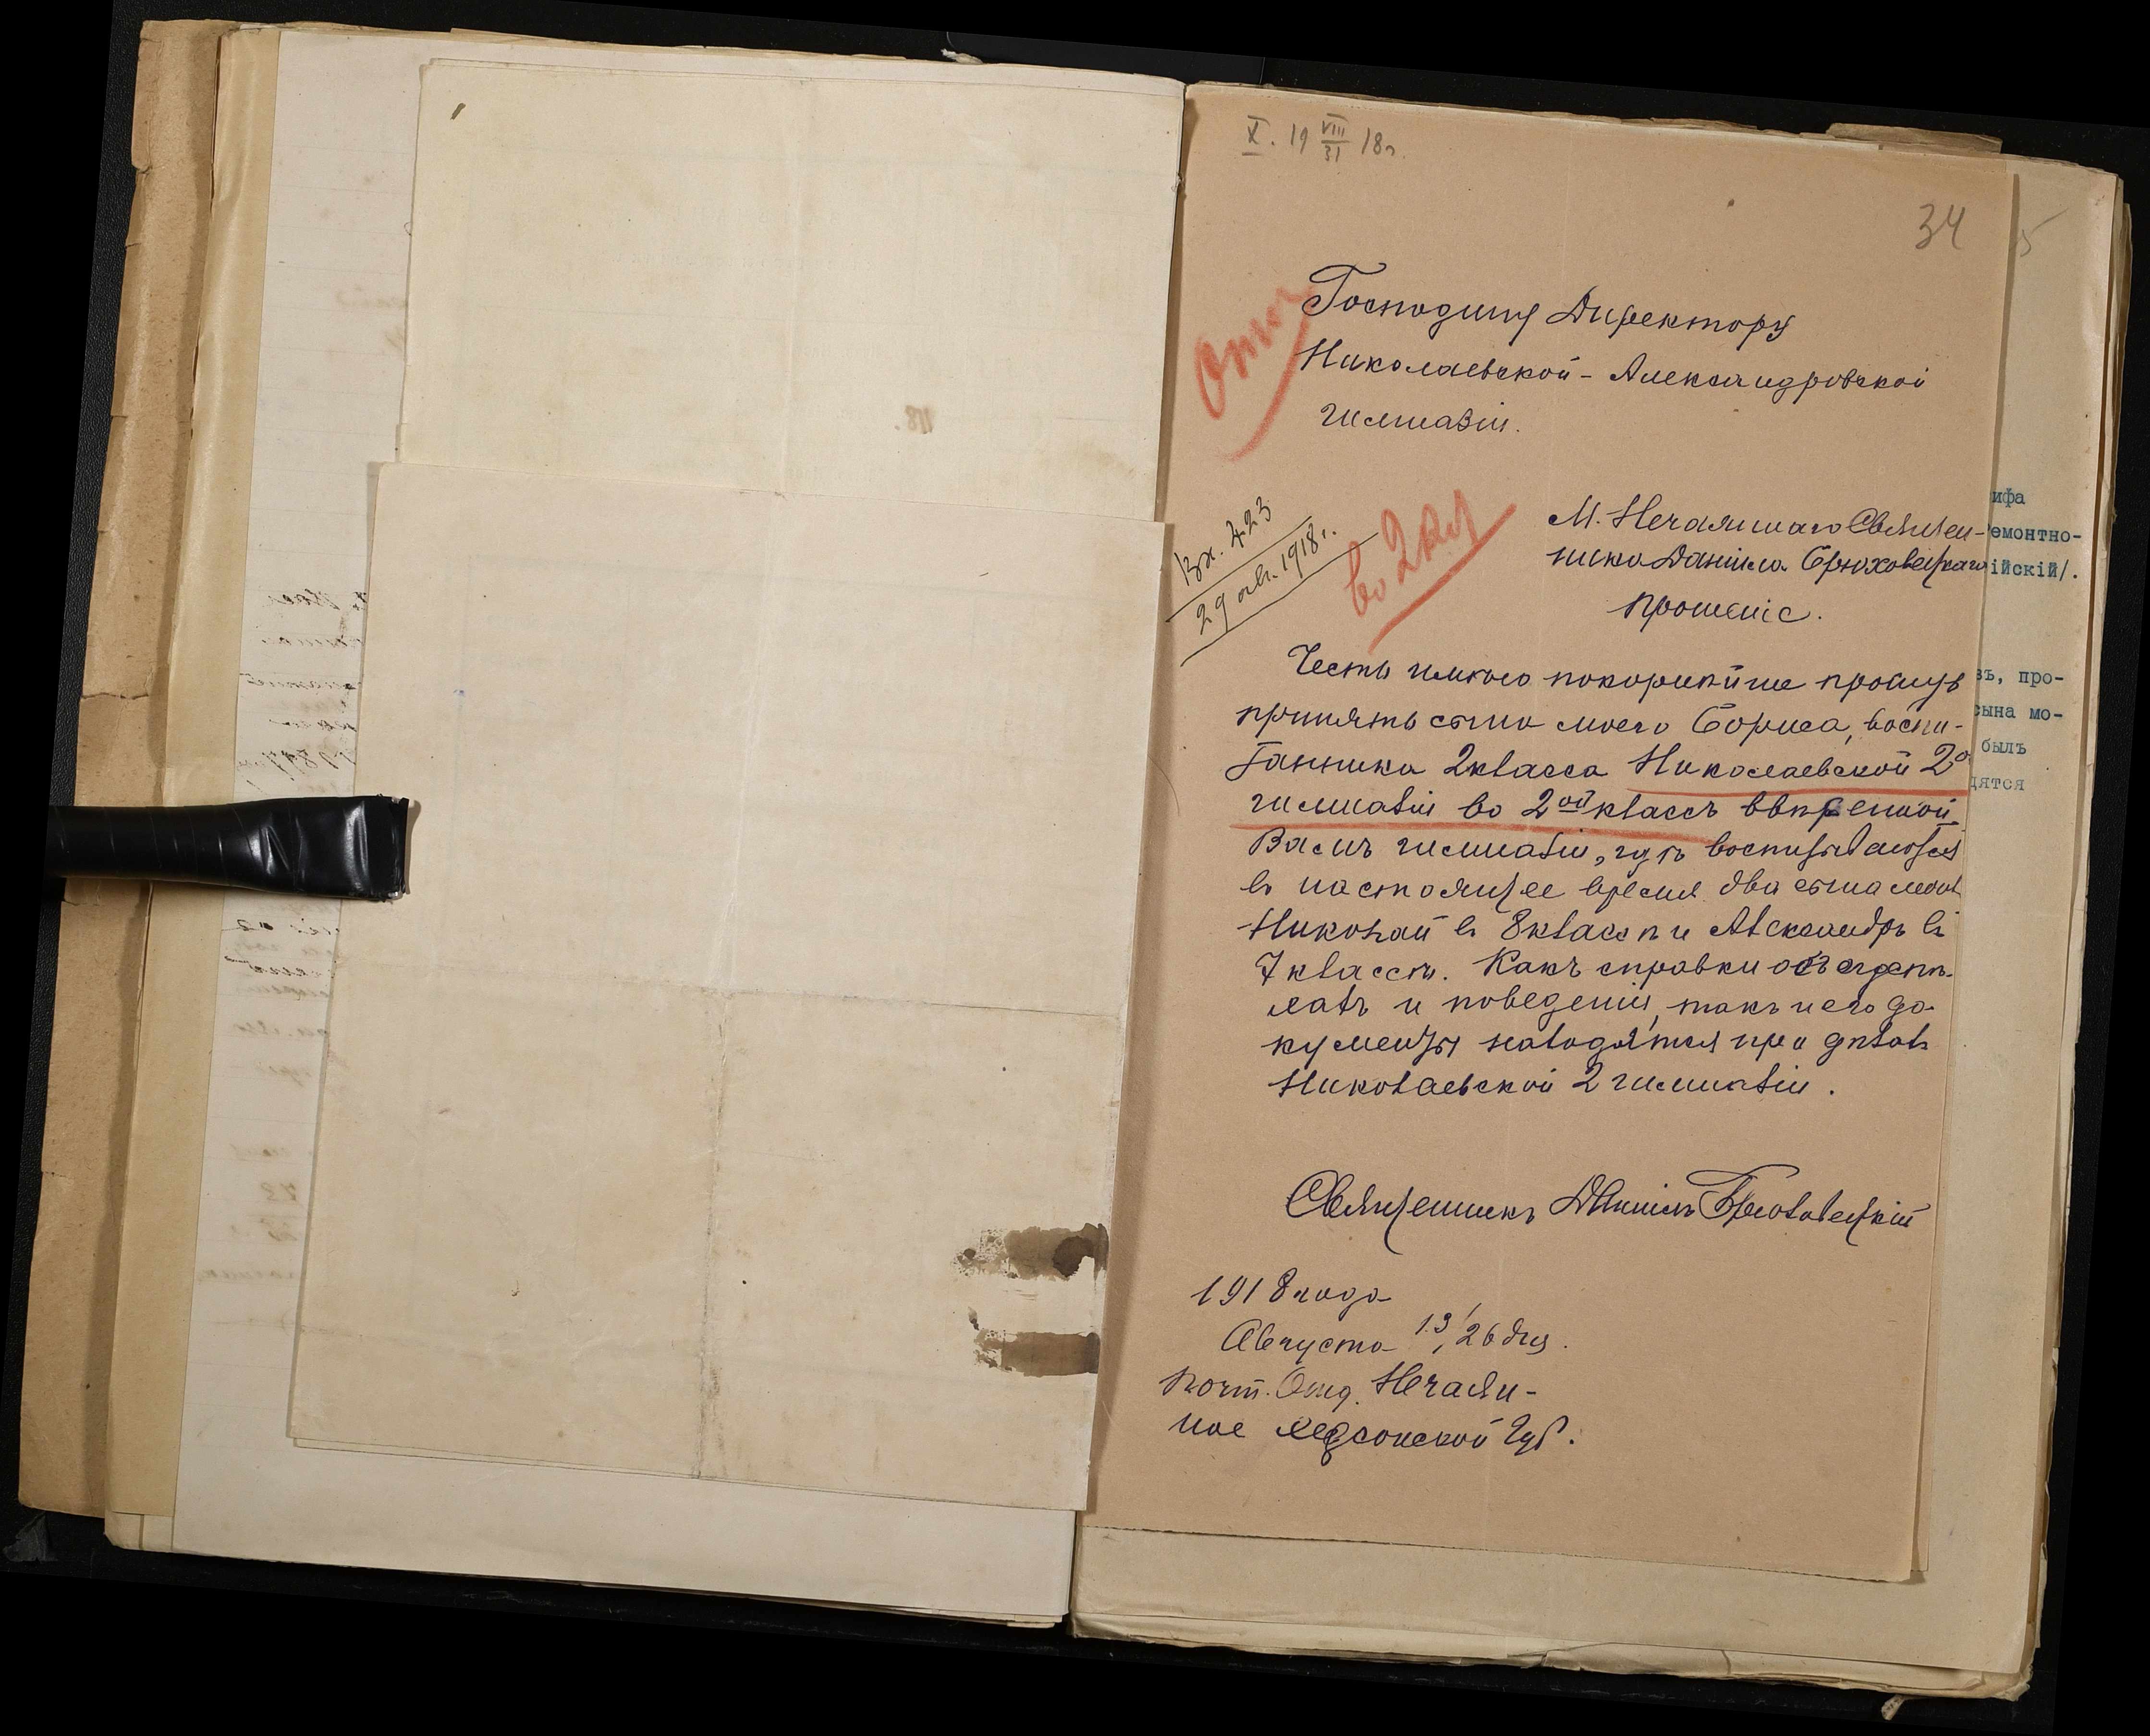 X. 19 VIII/31 18г.
34
Господину Директору
Николаевской-Александровской
гимназіи.
Вх. 423
29 авг. 1918г.
во 2 кл
М. Нечаяннаго Священ-
ника Даніила Брюховецкаго
прошеніе.
Честь имѣю покорнѣйше прошу
принять сына моего Бориса, воспи-
танника 2 класса Николаевской 2ой
гимназіи во 2ой классъ ввѣренной
Вамъ гимназіи, гдѣ воспитываются
въ настоящее время два сына моихъ
Николай въ 8 классѣ и Александръ въ
7 классѣ. Какъ справки объ
и поведеніи, такъ и его до-
кументы находятся при дѣлахъ
Николаевской 2 гимназіи.
Священникъ Даніилъ Брюховецкій
1918 года
Августа 13/26 дня.
Почт. Отд. Нечаян-
ное Херсонской Губ.
ифа
емонтно-
ійскій/.
въ, про-
сына мо-
былъ
дятся